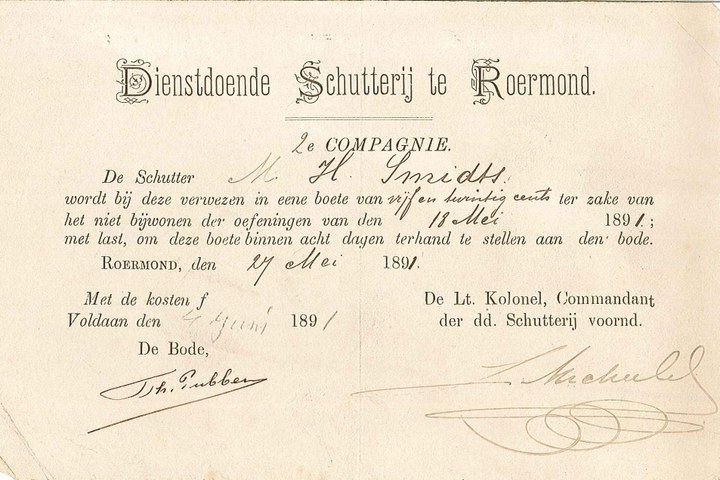 Dienstdoende Schutterij te Roermond.
2e COMPAGNIE.
De Schutter M. H. Smidts
wordt bij deze verwezen in eene boete van vijf en twintig cents ter zake van
het niet bijwonen der oefeningen van den 18 Mei 1891.;
met last, om deze boete binnen acht dagen terhand te stellen aan den bode.
ROERMOND, den 27 Mei 1891.
Met de kosten f
Voldaan den Juni 1891
De Lt. Kolonel, Commandant
der dd. Schutterij voornd.
De Bode,
Th.